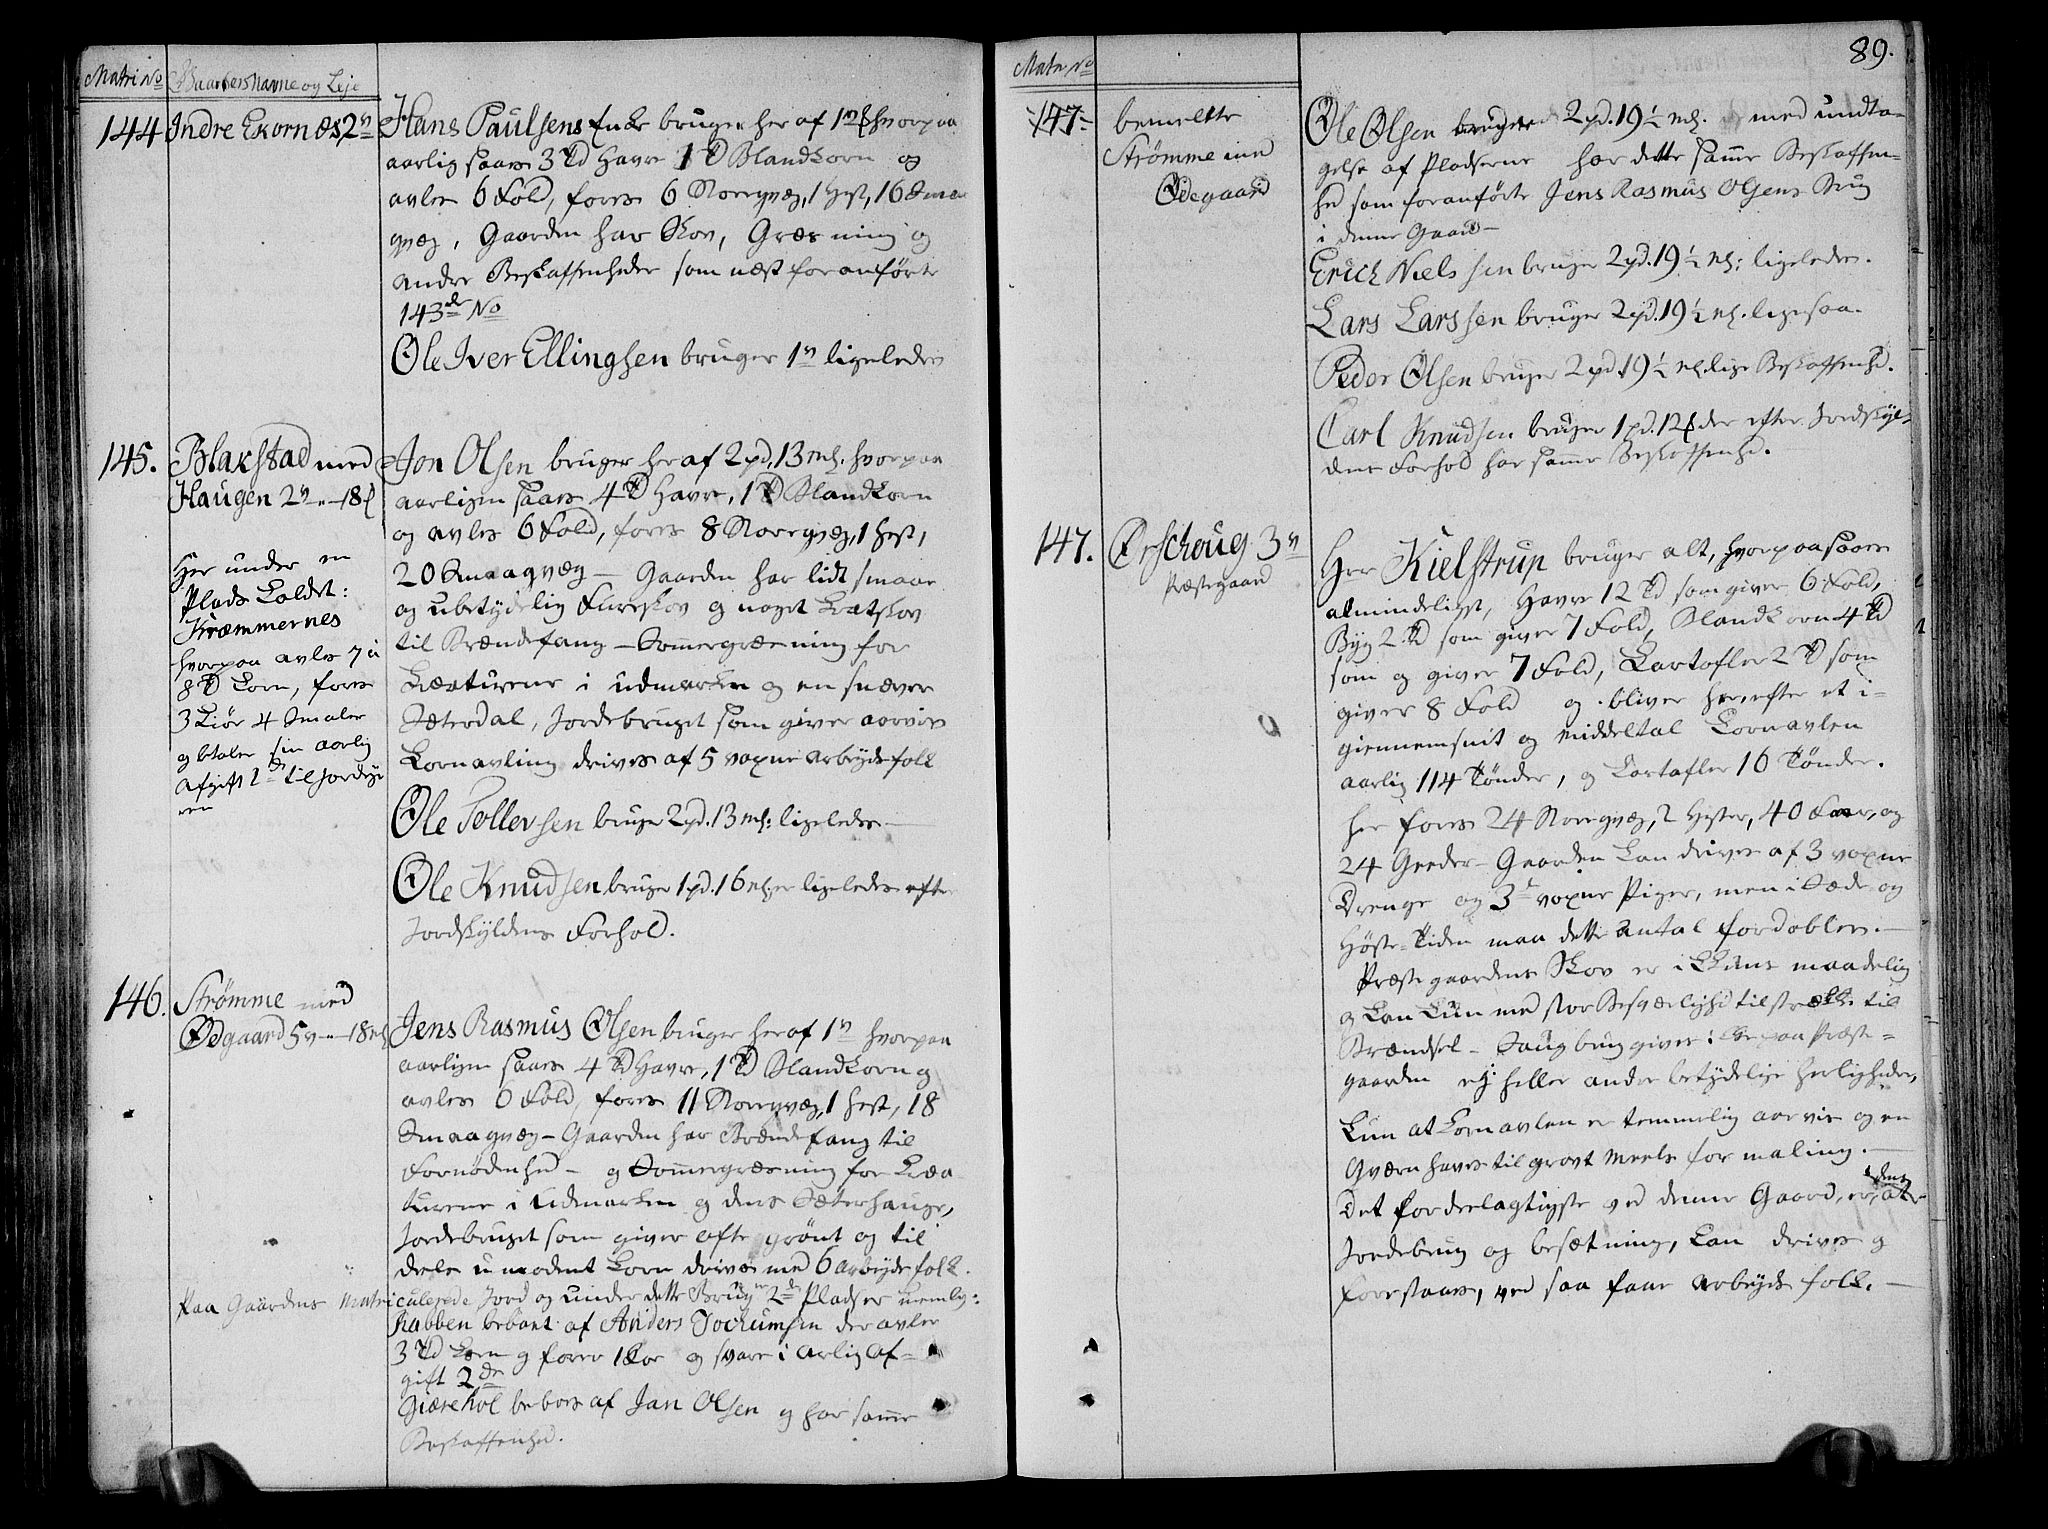 Matri No Gaardets Navne og Leje
144 Indre Ekornæs 2 v
Hans Paulsens Enke bruger her af 1 v hvorpaa
aarlig saaes 3 Td Havre 1 Td Blandkorn og
avles 6 Fold, föres 6 Storeqvæg, 1 Hest, 16 Smaa
qvæg, Gaarden har Skov, Græsning og
andre Beskaffenheder som næst foranførte
143de No
Ole Iver Ellingsen bruger 1 v ligeledes
145. Blakstad med
Haugen 2 v - 18
Her under en
Plads kaldet:
Kræmmernes
hvorpaa avles 7 à
8 Td Korn, föres
3 Kiör 4 Smaler
og betaler sin aarlig
Afgift til Jordeje
ren
Jon Olsen bruger her af 2 pd. 13 mk. hvorpaa
aarligen saaes 4 Td Havre, 1 Td Blandkorn
og avles 6 Fold, föres 8 Storeqvæg, 1 Hest,
20 Smaaqvæg - Gaarden har lidt smaae
og ubetydelig Fureskov og noget Kratskov
til Brændefang - Sommergræsning for
Kreaturene i udmarken og en snæver
Sæterdal, Jordebruget som giver aarvis
Kornavling drives af 5 voxne arbeydsfolk
Ole Tollevsen bruger 2 pd. 13 mk: ligeledes -
Ole Knudsen bruger 1 pd. 16 mk er ligeledes efter
Jordskyldens Forhold.
146. Strømme med
Ødgaard 5 v - 18 mk
Jens Rasmus Olsen bruger her af 1 v hvorpaa
aarligen saaes 4 Td Havre, 1 Td Blandkorn og
avles 6 Fold, föres 11 Storeqvæg, 1 Hest, 18
Smaaqvæg - Gaarden har Brændefang til
Fornødenhed - og Sommergræsning for Krea
turene i Udmarken og dens Sæterhauge,
Jordebruget som giver ofte grönt og til
deels umodent Korn drives med 6 arbeydsfolk.
Paa Gaardens Matriculerede Jord og under dette Brug er 2de Pladser nemlig:
Rabben beboet af Anders Jochumsen der avler
3 Td Korn og föder 1 Koe og svare i aarlig Af-
gift 2 dr
Giærehol beboes af Jan Olsen og har samme
Beskaffenhed.
Matr No
89.
147. bemelte
Strömme med
Ödegaard
Ole Olsen bruger 2 pd. 19 1/2 mk. med undta-
gelse af Pladserne har dette samme Beskaffen-
hed som foranförte Jens Rasmus Olsens Brug
i denne Gaard -
Erich Nielssen bruger 2 pd. 19 1/2 mk: ligeledes.
Lars Larssen bruger 2 pd. 19 1/2 mk. ligesaa.
Peder Olsen bruger 2 pd. 19 1/2 mk. lige Beskaffenhed.
Carl Knudsen bruger 1 pd. 12 der efter Jordskyl-
dens Forhold har samme Beskaffenhed.
147. Örschoug 3 v
Præstegaard
Herr Kielstrup bruger alt, hvorpaa saaes
almindeligst, Havre 12 Td som giver 6 Fold,
Byg 2 Td som giver 7 Fold, Blandkorn 4 Td
som og giver 7 Fold, Kartofler 2 Td som
giver 8 Fold og bliver herefter et i-
giennemsnit og middeltal Kornavlen
aarlig 114 Tönder, og Kartofler 16 Tönder.
her föres 24 Storeqvæg, 2 Hester, 40 Faar, og
24 Geeder - Gaarden kan drives af 3 voxne
Drenge og 3de voxne Piger, men i Sæde og
Höste-Tiden maa dette antal fordobles. -
Præstegaardens Skov er i maadelig
og kan kun med stor Besværlighed tilstrække til
Brændsel - Saugbrug giver i paa Præste-
gaarden ej heller andre betydelige Herligheder,
kun at Kornavlen er temmelig aarvis og en
Qværn haves til grovt Meels formaling. -
Det fordeelagtigste ved denne Gaard, er, at dens
Jordebrug og besætning, kan drives og
forestaaes, ved saa faae arbeyds folk. -